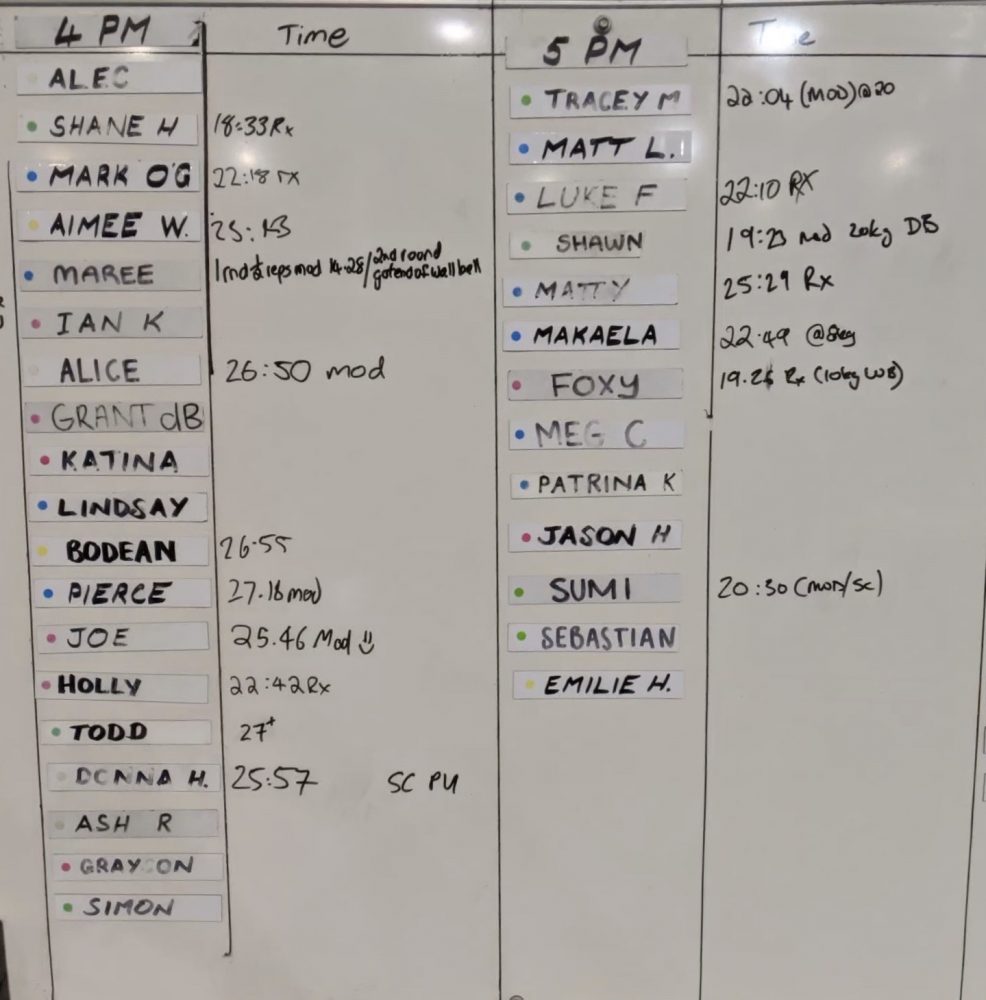 4 PM Time
ALEC
SHANE H 18:33 Rx
MARK O'G 22:18 rx
AIMEE W. 25:
MAREE 1rnd & reps mod 14.28/2nd round
got end of wall ball
IAN K
ALICE 26:50 mod
GRANT dB
KATINA
LINDSAY
BODEAN 26.55
PIERCE 27.18 mod
JOE 25.46 Mod
HOLLY 22:42 Rx
TODD 27+
DONNA H. 25:57 SC PU
ASH R
GRAYSON
SIMON
5 PM Time
TRACEY M 22:04 (MOD) @20
MATT L.
LUKE F 22:10 RX
SHAWN 19:23 mod 20kg DB
MATTY 25:29 Rx
MAKAELA 22.49 @8kg
FOXY Rx (10kg WB)
MEG C
PATRINA K
JASON H
SUMI 20:30 (mod/sc)
SEBASTIAN
EMILIE H.